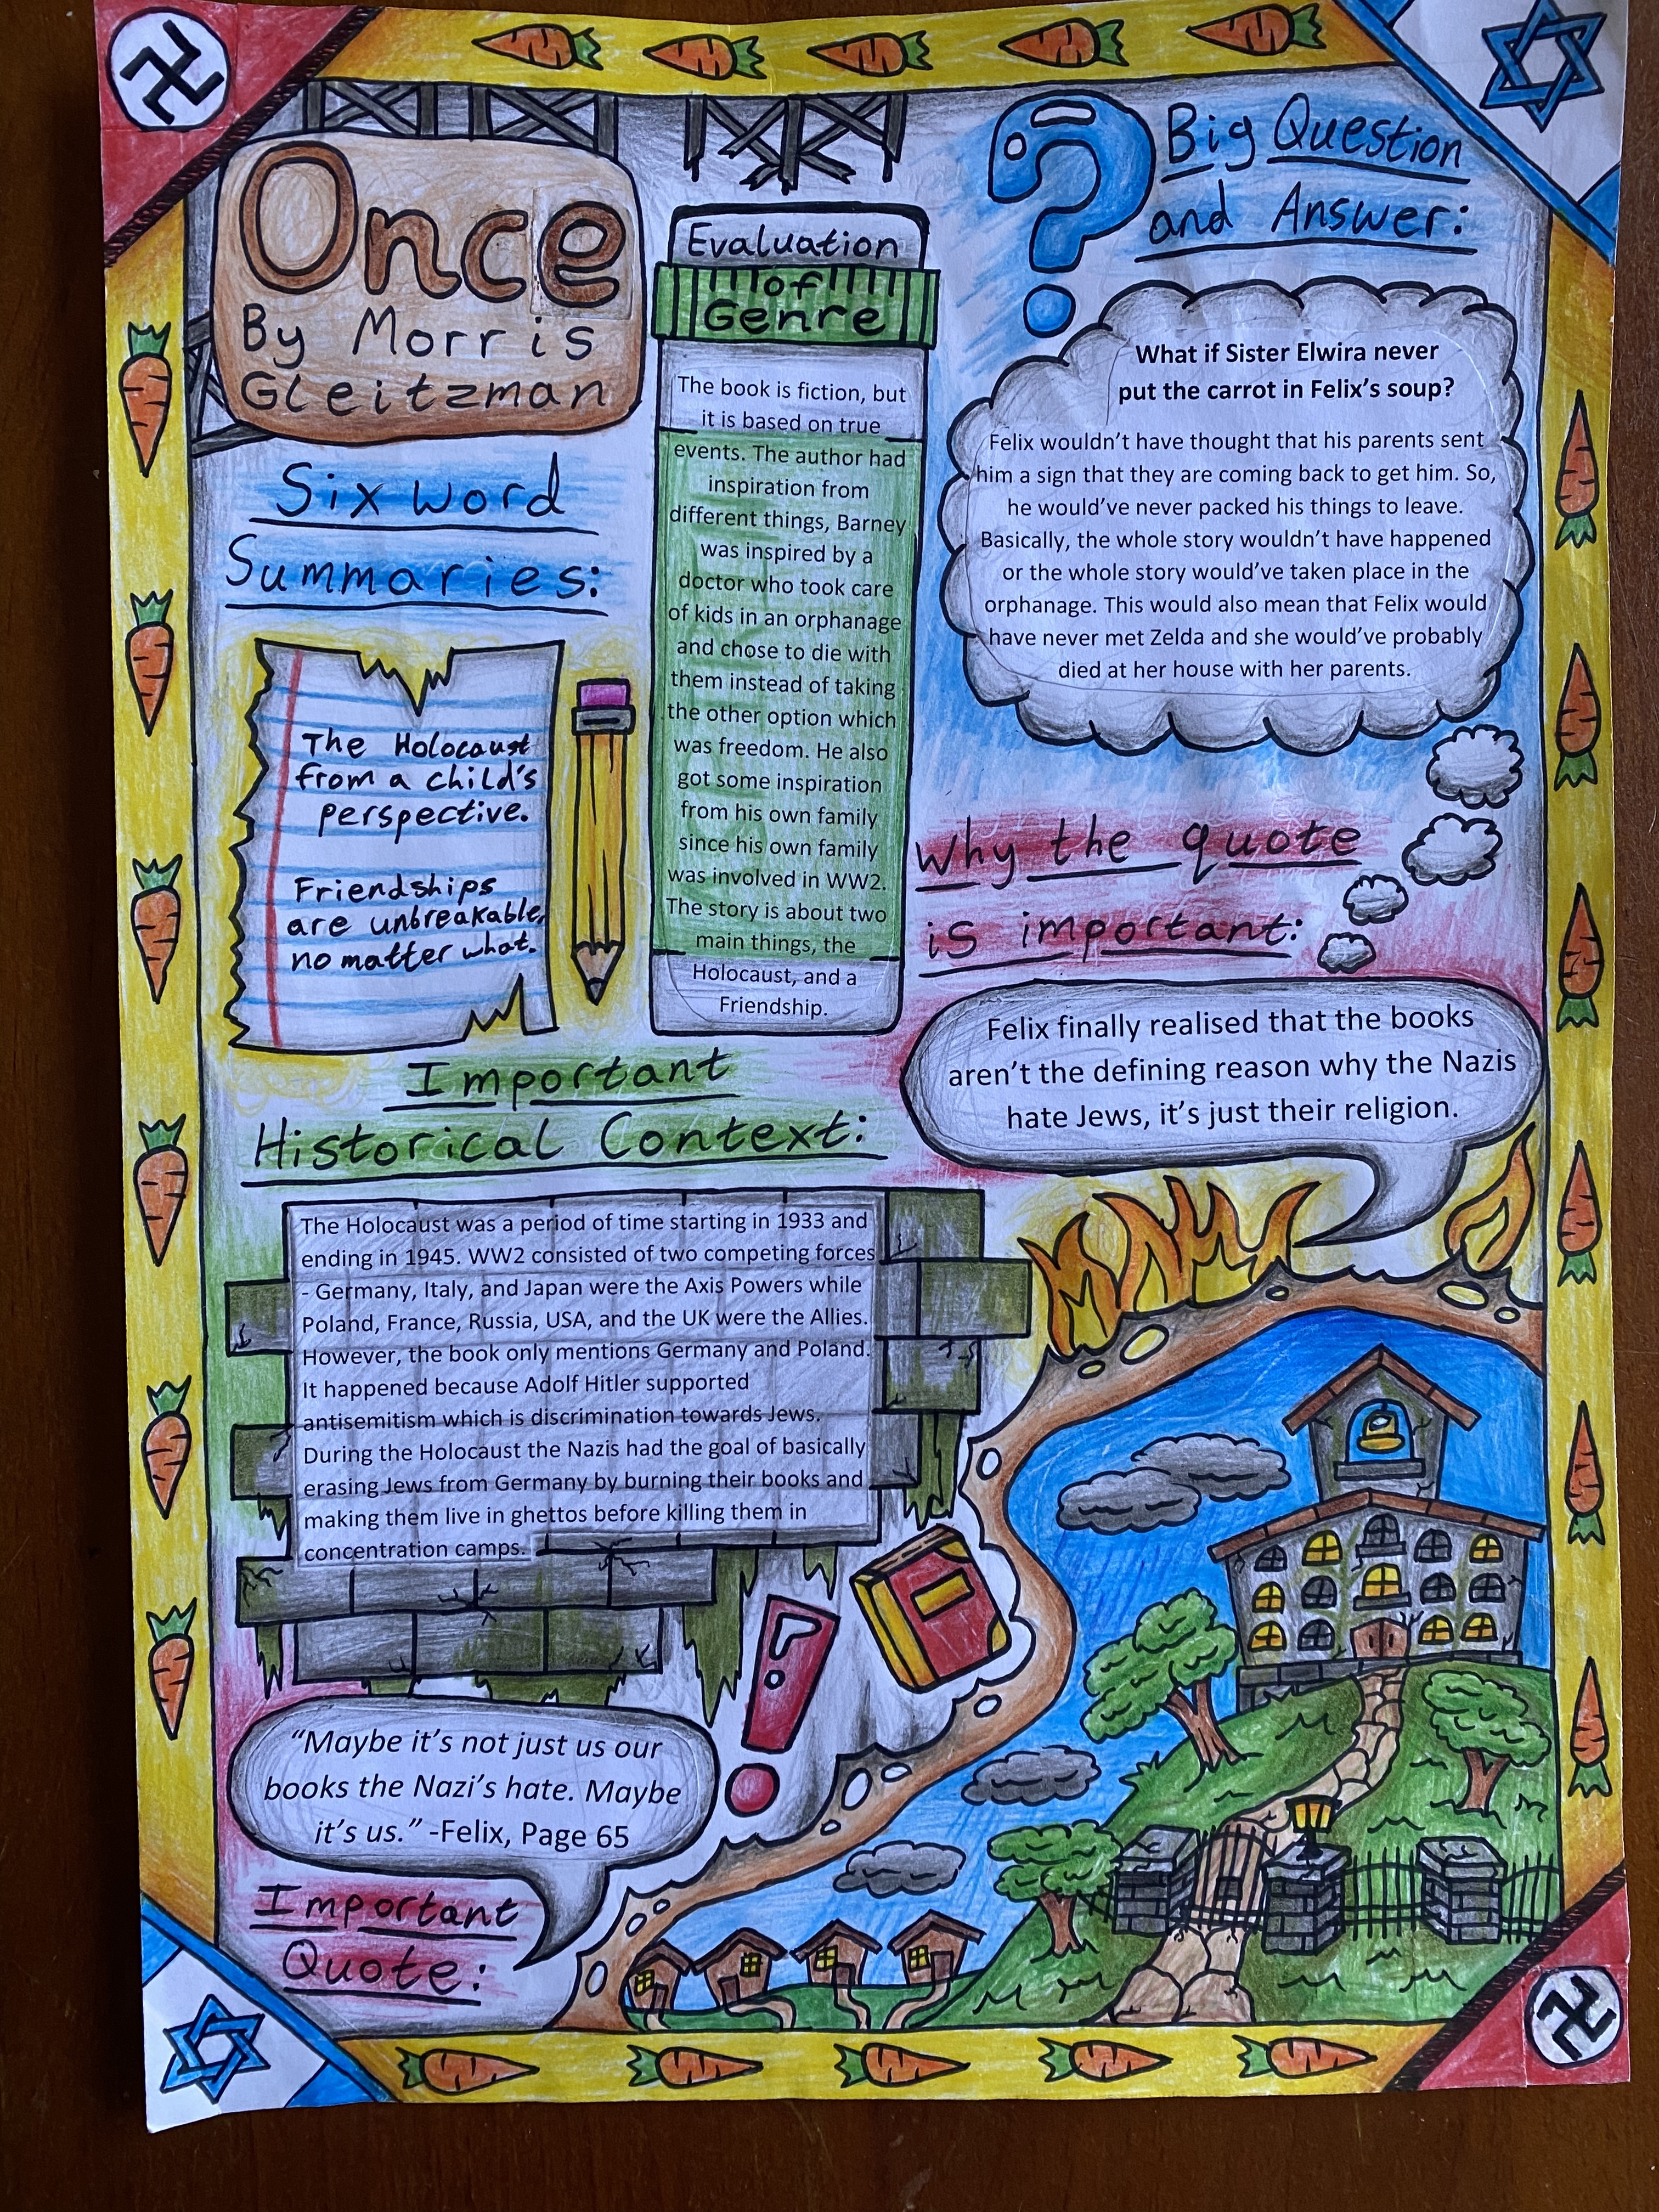 Once
By Morris
Gleitzman
Six word
Summaries:
The Holocaust
from a child's
perspective.
Friendships
are unbreakable,
no matter what.
Evaluation
of
Genre
The book is fiction, but
it is based on true
events. The author had
inspiration from
different things, Barney
was inspired by a
doctor who took care
of kids in an orphanage
and chose to die with
them instead of taking
the other option which
was freedom. He also
got some inspiration
from his own family
since his own family
was involved in WW2.
The story is about two
main things, the
Holocaust, and a
Friendship.
Big Question
and Answer:
What if Sister Elwira never
put the carrot in Felix's soup?
Felix wouldn't have thought that his parents sent
him a sign that they are coming back to get him. So,
he would've never packed his things to leave.
Basically, the whole story wouldn't have happened
or the whole story would've taken place in the
orphanage. This would also mean that Felix would
have never met Zelda and she would've probably
died at her house with her parents.
Why the quote
is important:
Felix finally realised that the books
aren't the defining reason why the Nazis
hate Jews, it's just their religion.
Important
Historical Context:
The Holocaust was a period of time starting in 1933 and
ending in 1945. WW2 consisted of two competing forces
- Germany, Italy, and Japan were the Axis Powers while
Poland, France, Russia, USA, and the UK were the Allies.
However, the book only mentions Germany and Poland.
It happened because Adolf Hitler supported
antisemitism which is discrimination towards Jews.
During the Holocaust the Nazis had the goal of basically
erasing Jews from Germany by burning their books and
making them live in ghettos before killing them in
concentration camps.
"Maybe it's not just us our
books the Nazi's hate. Maybe
it's us." -Felix, Page 65
Important
Quote: